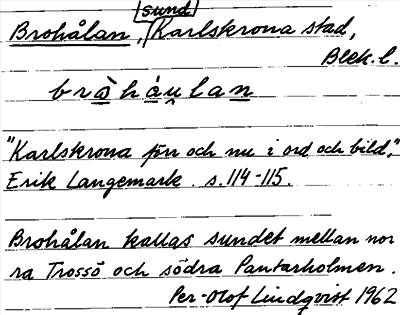 sund
Brohålan, Karlskrona stad,
Blek. l.
bråhau̯lan
"Karlskrona förr och nu i ord och bild",
Erik Langemark. s. 114-115.
Brohålan kallas sundet mellan nor
ra Trossö och södra Pantarholmen.
Per-Olof Lindqvist 1962